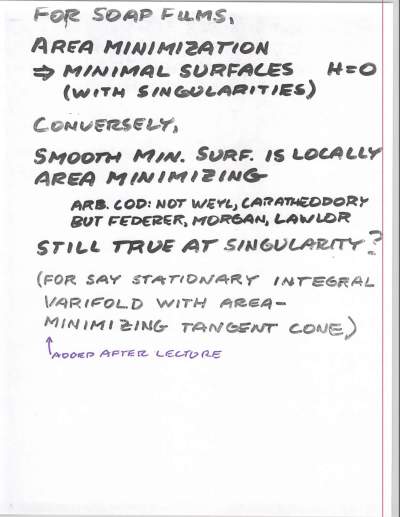 FOR SOAP FILMS,
AREA MINIMIZATION
⇒ MINIMAL SURFACES H=0
(WITH SINGULARITIES)
CONVERSELY,
SMOOTH MIN. SURF. IS LOCALLY
AREA MINIMIZING
ARB. COD: NOT WEYL, CARATHEODORY
BUT FEDERER, MORGAN, LAWLOR
STILL TRUE AT SINGULARITY?
(FOR SAY STATIONARY INTEGRAL
VARIFOLD WITH AREA-
MINIMIZING TANGENT CONE)
↑ADDED AFTER LECTURE